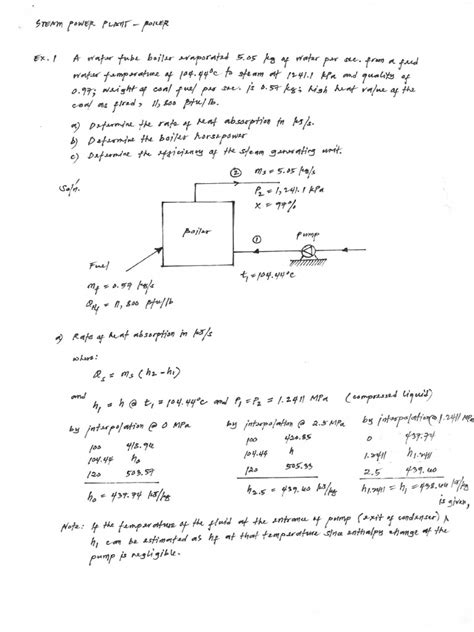 STEAM POWER PLANT - BOILER
Ex. 1 A water tube boiler evaporated 5.05 kg of water per sec. from a feed
water temperature of 104.44°C to steam at 1241.1 kPa and quality of
0.99; weight of coal fuel per sec. is 0.59 kg; high heat value of the
coal as fired, 11,800 Btu/lb.
a) Determine the rate of heat absorption in kJ/s.
b) Determine the boiler horsepower
c) Determine the efficiency of the steam generating unit.
Sol'n.
② ms = 5.05 kg/s
P2 = 1,241.1 kPa
x = 99%
Boiler
①
Pump
t1 = 104.44°C
Fuel
mf = 0.59 kg/s
QHf = 11,800 Btu/lb
a) Rate of heat absorption in kJ/s
where:
Qs = ms (h2 - h1)
and
h1 = h @ t1 = 104.44°C and P1 = P2 = 1.2411 MPa (compressed liquid)
by interpolation @ 0 MPa by interpolation @ 2.5 MPa by interpolation @ 1.2411 MPa
100 418.94 100 420.85 0 437.74
104.44 h0 104.44 h 1.2411 h1.2411
120 503.57 120 505.33 2.5 439.60
h0 = 437.74 kJ/kg h2.5 = 439.60 kJ/kg h1.2411 = h1 = 438.60 kJ/kg
is given,
Note: If the temperature of the fluid at the entrance of pump (exit of condenser)
h1 can be estimated as hf at that temperature since enthalpy change at the
pump is negligible.